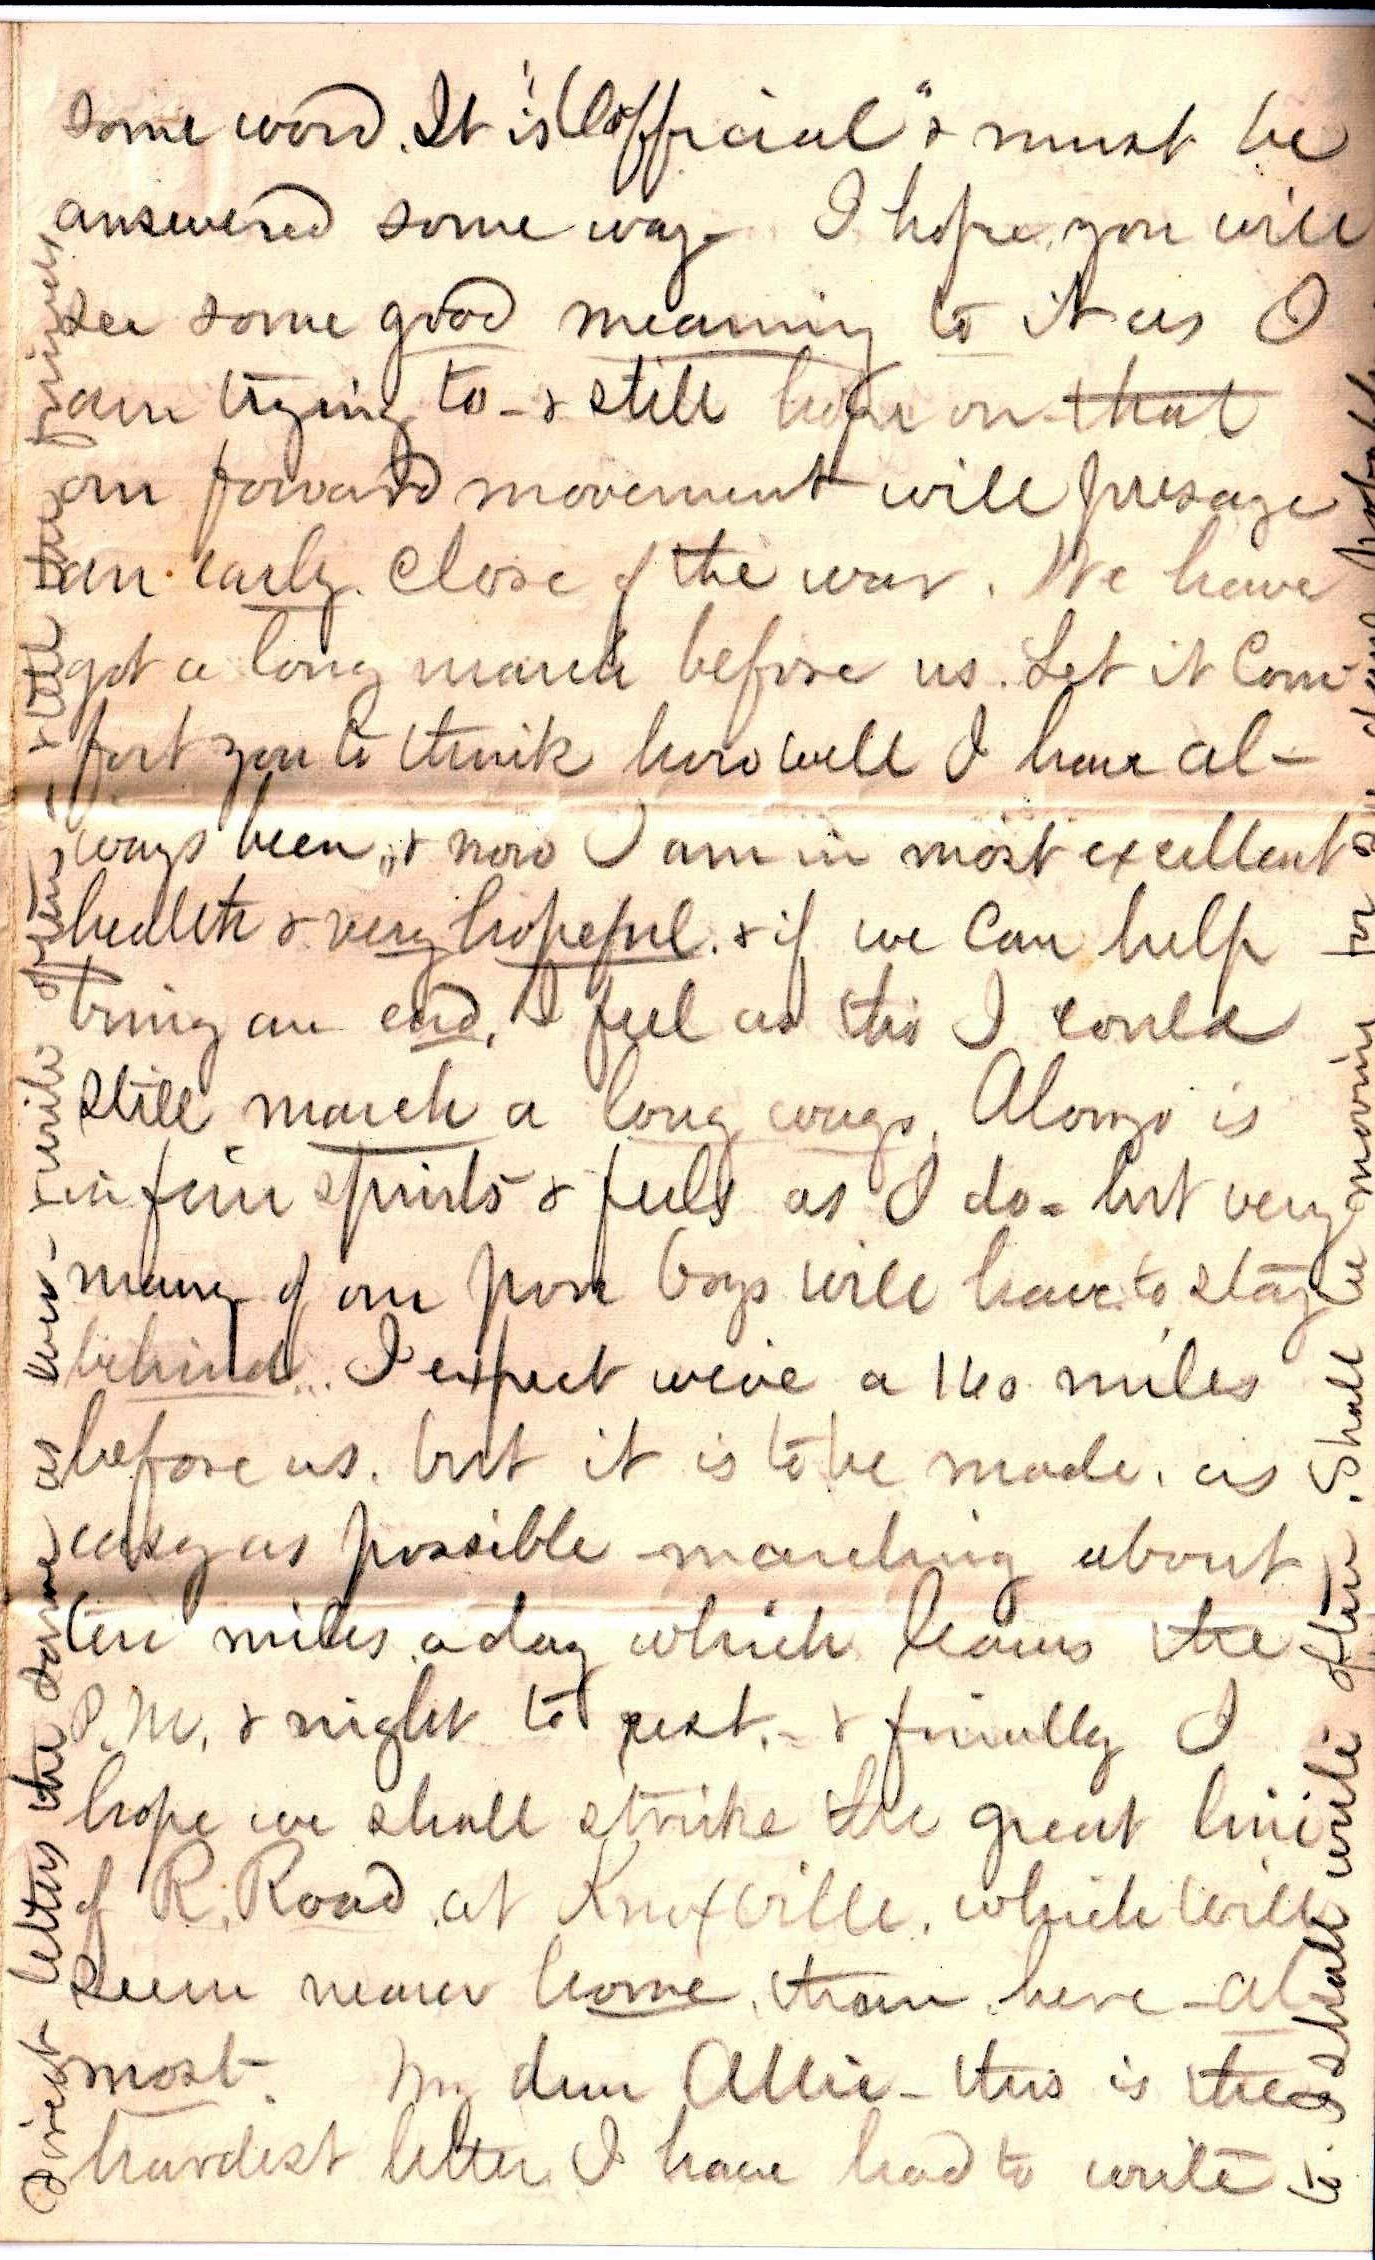 some word. It is "Official" & must be
answered some way. I hope you will
see some good meaning to it as I
am trying to - & still hope on that
our forward movement will presage
an early close of the war. We have
got a long march before us. Let it Com-
fort you to think how well I have al-
ways been, & now I am in most excellent
health & very hopeful. & if we can help
bring an end, I feel as tho I could
still march a long ways. Alonzo is
in fine spirits & feels as I do - but very
many of our poor boys will have to stay
behind... I expect we've a 140 miles
before us. but it is to be made, as
easy as possible - marching about
ten miles a day which leaves the
P.M. & night to rest. - & finally I
hope we shall strike the great line
of R. Road at Knoxville, which will
seem nearer home than here - al
most. My dear Allie - this is the
hardest letter I have had to write
to. I shall write often. Shall be moving for 20 days probably
Direct letters the same as ever - & write often - & tell the friends